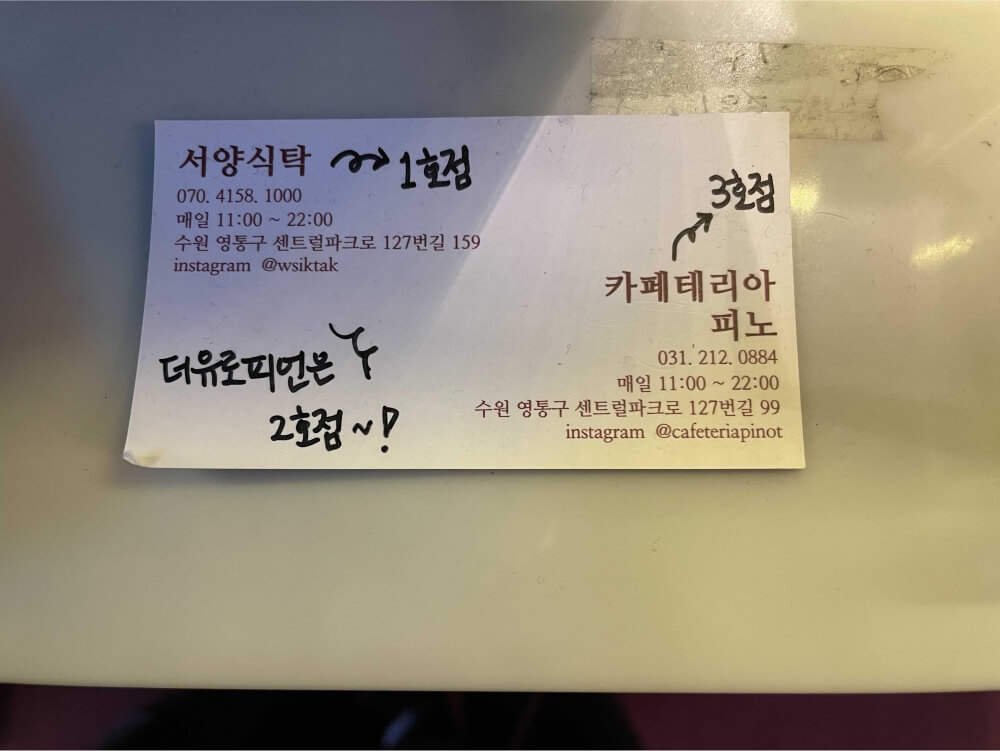 서양식탁 1호점
070. 4158. 1000
매일 11:00 ~ 22:00
수원 영통구 센트럴파크로 127번길 159
instagram @wsiktak
3호점
카페테리아
피노
031. 212. 0884
매일 11:00 ~ 22:00
수원 영통구 센트럴파크로 127번길 99
instagram @cafeteriapinot
더유로피언은
2호점~!